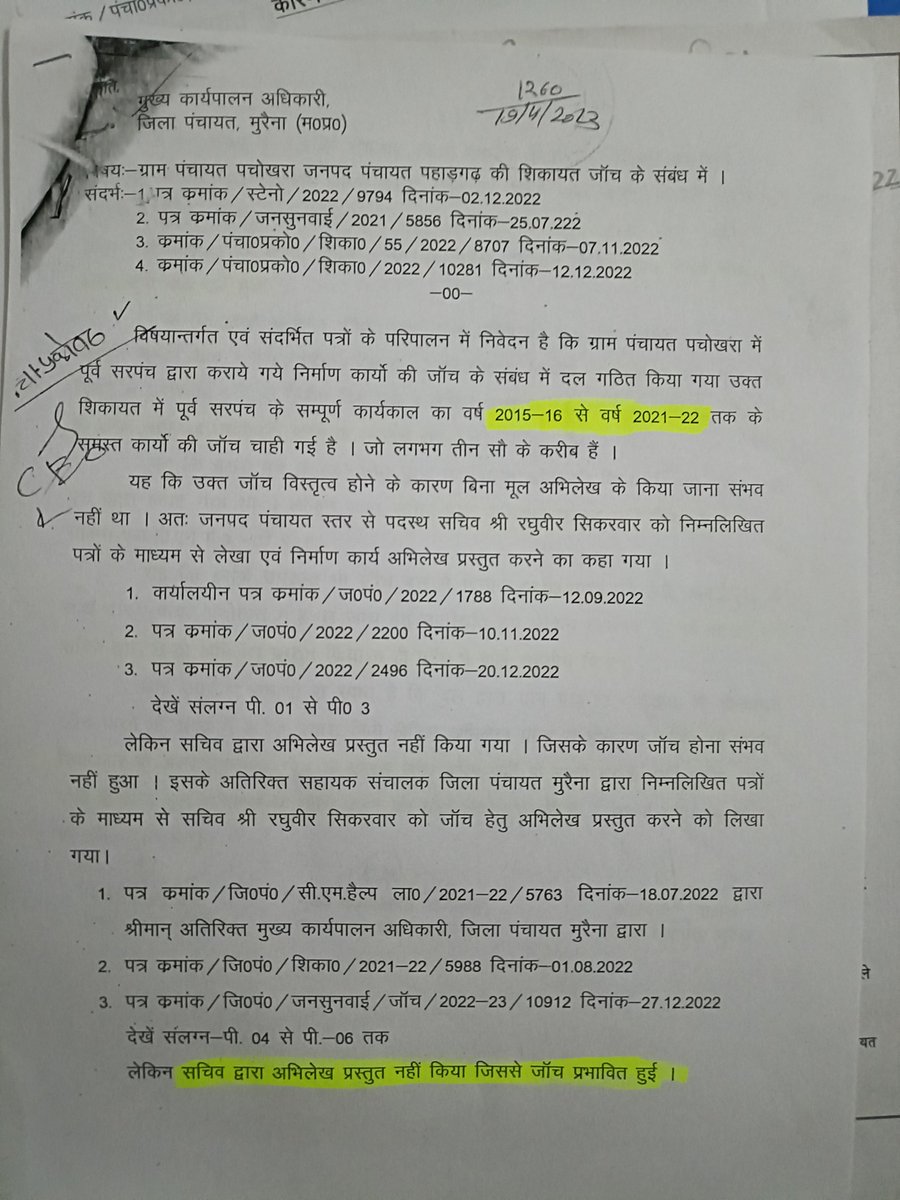 मुख्य कार्यपालन अधिकारी,
जिला पंचायत, मुरैना (म0प्र0)
1260
19/4/2023
विषयः–ग्राम पंचायत पचोखरा जनपद पंचायत पहाड़गढ़ की शिकायत जॉच के संबंध में ।
संदर्भः–1. पत्र कमांक/स्टेनो/2022/9794 दिनांक–02.12.2022
2. पत्र कमांक/जनसुनवाई/2021/5856 दिनांक–25.07.222
3. कमांक/पंचा0प्रको0/शिका0/55/2022/8707 दिनांक–07.11.2022
4. कमांक/पंचा0प्रको0/शिका0/2022/10281 दिनांक–12.12.2022
–00–
विषयान्तर्गत एवं संदर्भित पत्रों के परिपालन में निवेदन है कि ग्राम पंचायत पचोखरा में
पूर्व सरपंच द्वारा कराये गये निर्माण कार्यो की जॉच के संबंध में दल गठित किया गया उक्त
शिकायत में पूर्व सरपंच के सम्पूर्ण कार्यकाल का वर्ष 2015–16 से वर्ष 2021–22 तक के
समस्त कार्यो की जॉच चाही गई है । जो लगभग तीन सौ के करीब हैं ।
यह कि उक्त जॉच विस्तृत्व होने के कारण बिना मूल अभिलेख के किया जाना संभव
नहीं था । अतः जनपद पंचायत स्तर से पदस्थ सचिव श्री रघुवीर सिकरवार को निम्नलिखित
पत्रों के माध्यम से लेखा एवं निर्माण कार्य अभिलेख प्रस्तुत करने का कहा गया ।
1. कार्यालयीन पत्र कमांक/ज0पं0/2022/1788 दिनांक–12.09.2022
2. पत्र कमांक/ज0पं0/2022/2200 दिनांक–10.11.2022
3. पत्र कमांक/ज0पं0/2022/2496 दिनांक–20.12.2022
देखें संलग्न पी. 01 से पी0 3
लेकिन सचिव द्वारा अभिलेख प्रस्तुत नहीं किया गया । जिसके कारण जॉच होना संभव
नहीं हुआ । इसके अतिरिक्त सहायक संचालक जिला पंचायत मुरैना द्वारा निम्नलिखित पत्रों
के माध्यम से सचिव श्री रघुवीर सिकरवार को जॉच हेतु अभिलेख प्रस्तुत करने को लिखा
गया।
1. पत्र कमांक/जि0पं0/सी.एम.हैल्प ला0/2021–22/5763 दिनांक–18.07.2022 द्वारा
श्रीमान् अतिरिक्त मुख्य कार्यपालन अधिकारी, जिला पंचायत मुरैना द्वारा ।
2. पत्र कमांक/जि0पं0/शिका0/2021–22/5988 दिनांक–01.08.2022
3. पत्र कमांक/जि0पं0/जनसुनवाई/जॉच/2022–23/10912 दिनांक–27.12.2022
देखें संलग्न–पी. 04 से पी.–06 तक
लेकिन सचिव द्वारा अभिलेख प्रस्तुत नहीं किया जिससे जॉच प्रभावित हुई ।